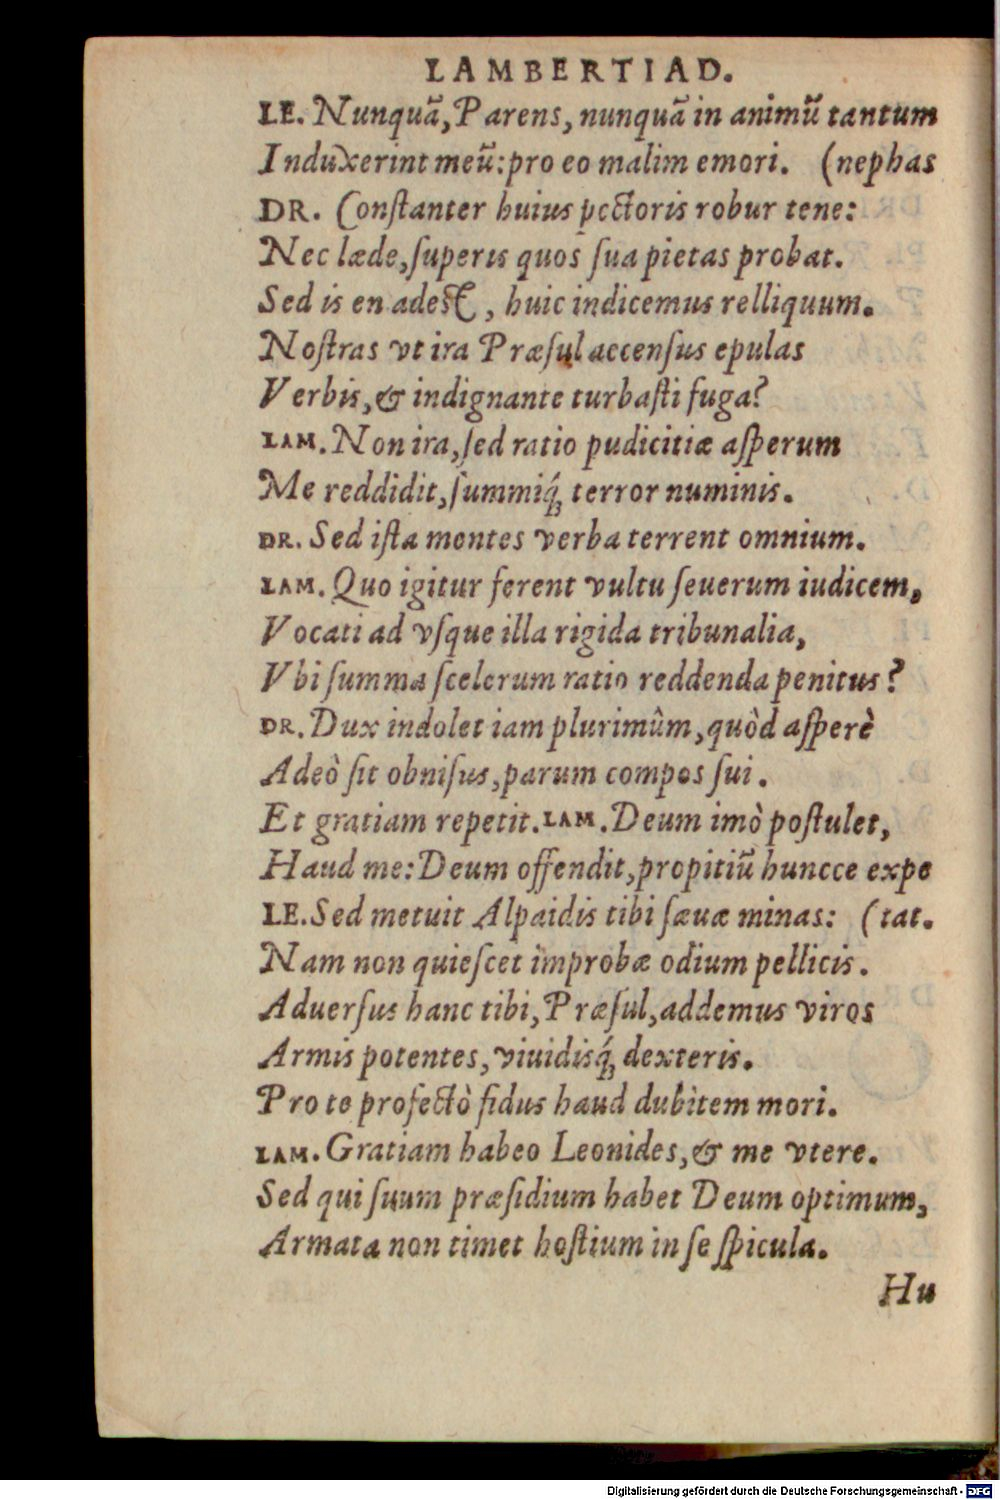 LAMBERTIAD.
LE. Nunquā, Parens, nunquā in animū tantum
Induxerint meū: pro eo malim emori. (nephas
DR. Conſtanter huius pectoris robur tene:
Nec læde, ſuperis quos ſua pietas probat.
Sed is en adest, huic indicemus relliquum.
Noſtras vt ira Præſul accenſus epulas
Verbis, & indignante turbaſti fuga?
LAM. Non ira, ſed ratio pudicitiæ aſperum
Me reddidit, ſummiq́ꝫ terror numinis.
DR. Sed iſta mentes verba terrent omnium.
LAM. Quo igitur ferent vultu ſeuerum iudicem,
Vocati ad vſque illa rigida tribunalia,
Vbi ſumma ſcelerum ratio reddenda penitus?
DR. Dux indolet iam plurimûm, quòd aſperè
Adeò ſit obniſus, parum compos ſui.
Et gratiam repetit. LAM. Deum imò poſtulet,
Haud me: Deum offendit, propitiū huncce expe
LE. Sed metuit Alpaidis tibi ſæuæ minas: (tat.
Nam non quieſcet improbæ odium pellicis.
Aduerſus hanc tibi, Præſul, addemus viros
Armis potentes, viuidisq́ꝫ dexteris.
Pro te profectò fidus haud dubitem mori.
LAM. Gratiam habeo Leonides, & me vtere.
Sed qui ſuum præſidium habet Deum optimum,
Armata non timet hoſtium in ſe ſpicula.
Hu
Digitalisierung gefördert durch die Deutsche Forschungsgemeinschaft - DFG